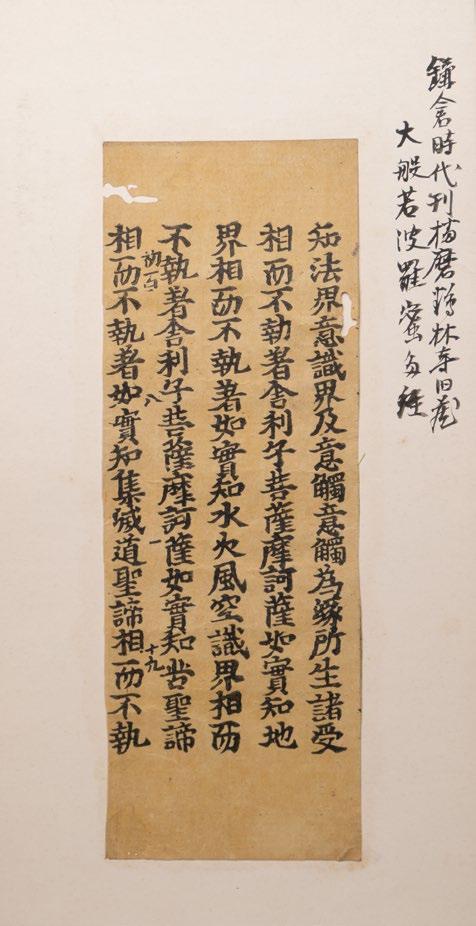 鎌倉時代刊播磨鶴林寺旧蔵
大般若波羅蜜多経
知法界意識界及意觸意觸為緣所生諸受
相而不執著舍利子菩薩摩訶薩如實知地
界相而不執著如實知水火風空識界相而
不執著舍利子菩薩摩訶薩如實知苦聖諦
相而不執著如實知集滅道聖諦相而不執
初百
八
十九